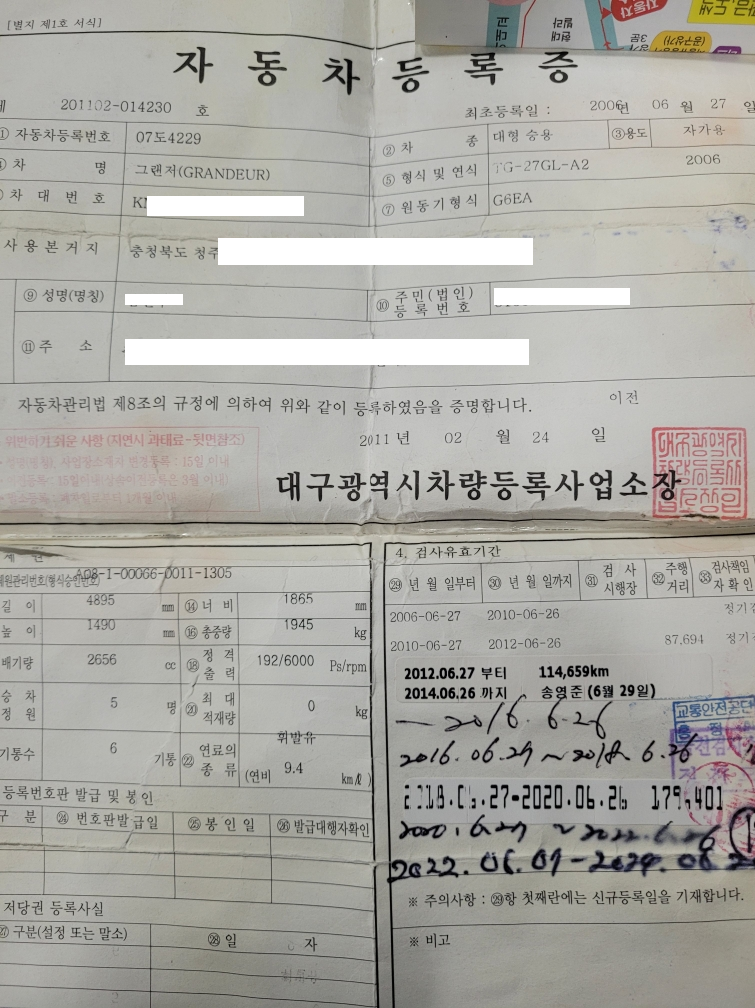 [별지 제1호 서식]
자동차등록증
201102-014230 호
최초등록일 : 2006년 06 월 27 일
① 자동차등록번호 07도4229
② 차 종 대형 승용 ③용도 자가용
차 명 그랜저(GRANDEUR)
⑤ 형식 및 연식 TG-27GL-A2 2006
차 대 번 호
⑦ 원동기형식 G6EA
사 용 본 거 지 충청북도 청주
⑨ 성명(명칭)
⑩ 주민(법인)등록번호
⑪ 주 소
자동차관리법 제8조의 규정에 의하여 위와 같이 등록하였음을 증명합니다.
이전
2011 년 02 월 24 일
위반하기 쉬운 사항 (지연시 과태료-뒷면참조)
대구광역시차량등록사업소장
제원관리번호(형식승인번호) A08-1-00066-0011-1305
길 이 4895 mm ⑭ 너 비 1865 mm
높 이 1490 mm ⑯ 총중량 1945 kg
배기량 2656 cc ⑱ 정 격 출 력 192/6000 Ps/rpm
승 차 정 원 5 명 ⑳ 최 대 적재량 0 kg
기통수 6 기통 ㉒ 연료의 종 류 휘발유 (연비 9.4 km/ℓ)
등록번호판 발급 및 봉인
구 분 ㉔ 번호판발급일 ㉕ 봉 인 일 ㉖ 발급대행자확인
저당권 등록사실
㉗ 구분(설정 또는 말소) ㉘ 일 자
4. 검사유효기간
㉙ 년 월 일부터 ㉚ 년 월 일까지 ㉛ 검 사 시행장 ㉜ 주행 거리 ㉝ 검사책임 자 확 인
2006-06-27 2010-06-26
2010-06-27 2012-06-26 87,694
2012.06.27 부터 114,659km
2014.06.26 까지 송영준 (6월 29일)
2016. 6.26
교통안전공단
2016. 06.27 ~ 2018. 6.26
2018.06.27-2020.06.26
2020. 6.27 ~ 2022. 6.26
※ 주의사항 : ㉙항 첫째란에는 신규등록일을 기재합니다.
※ 비고